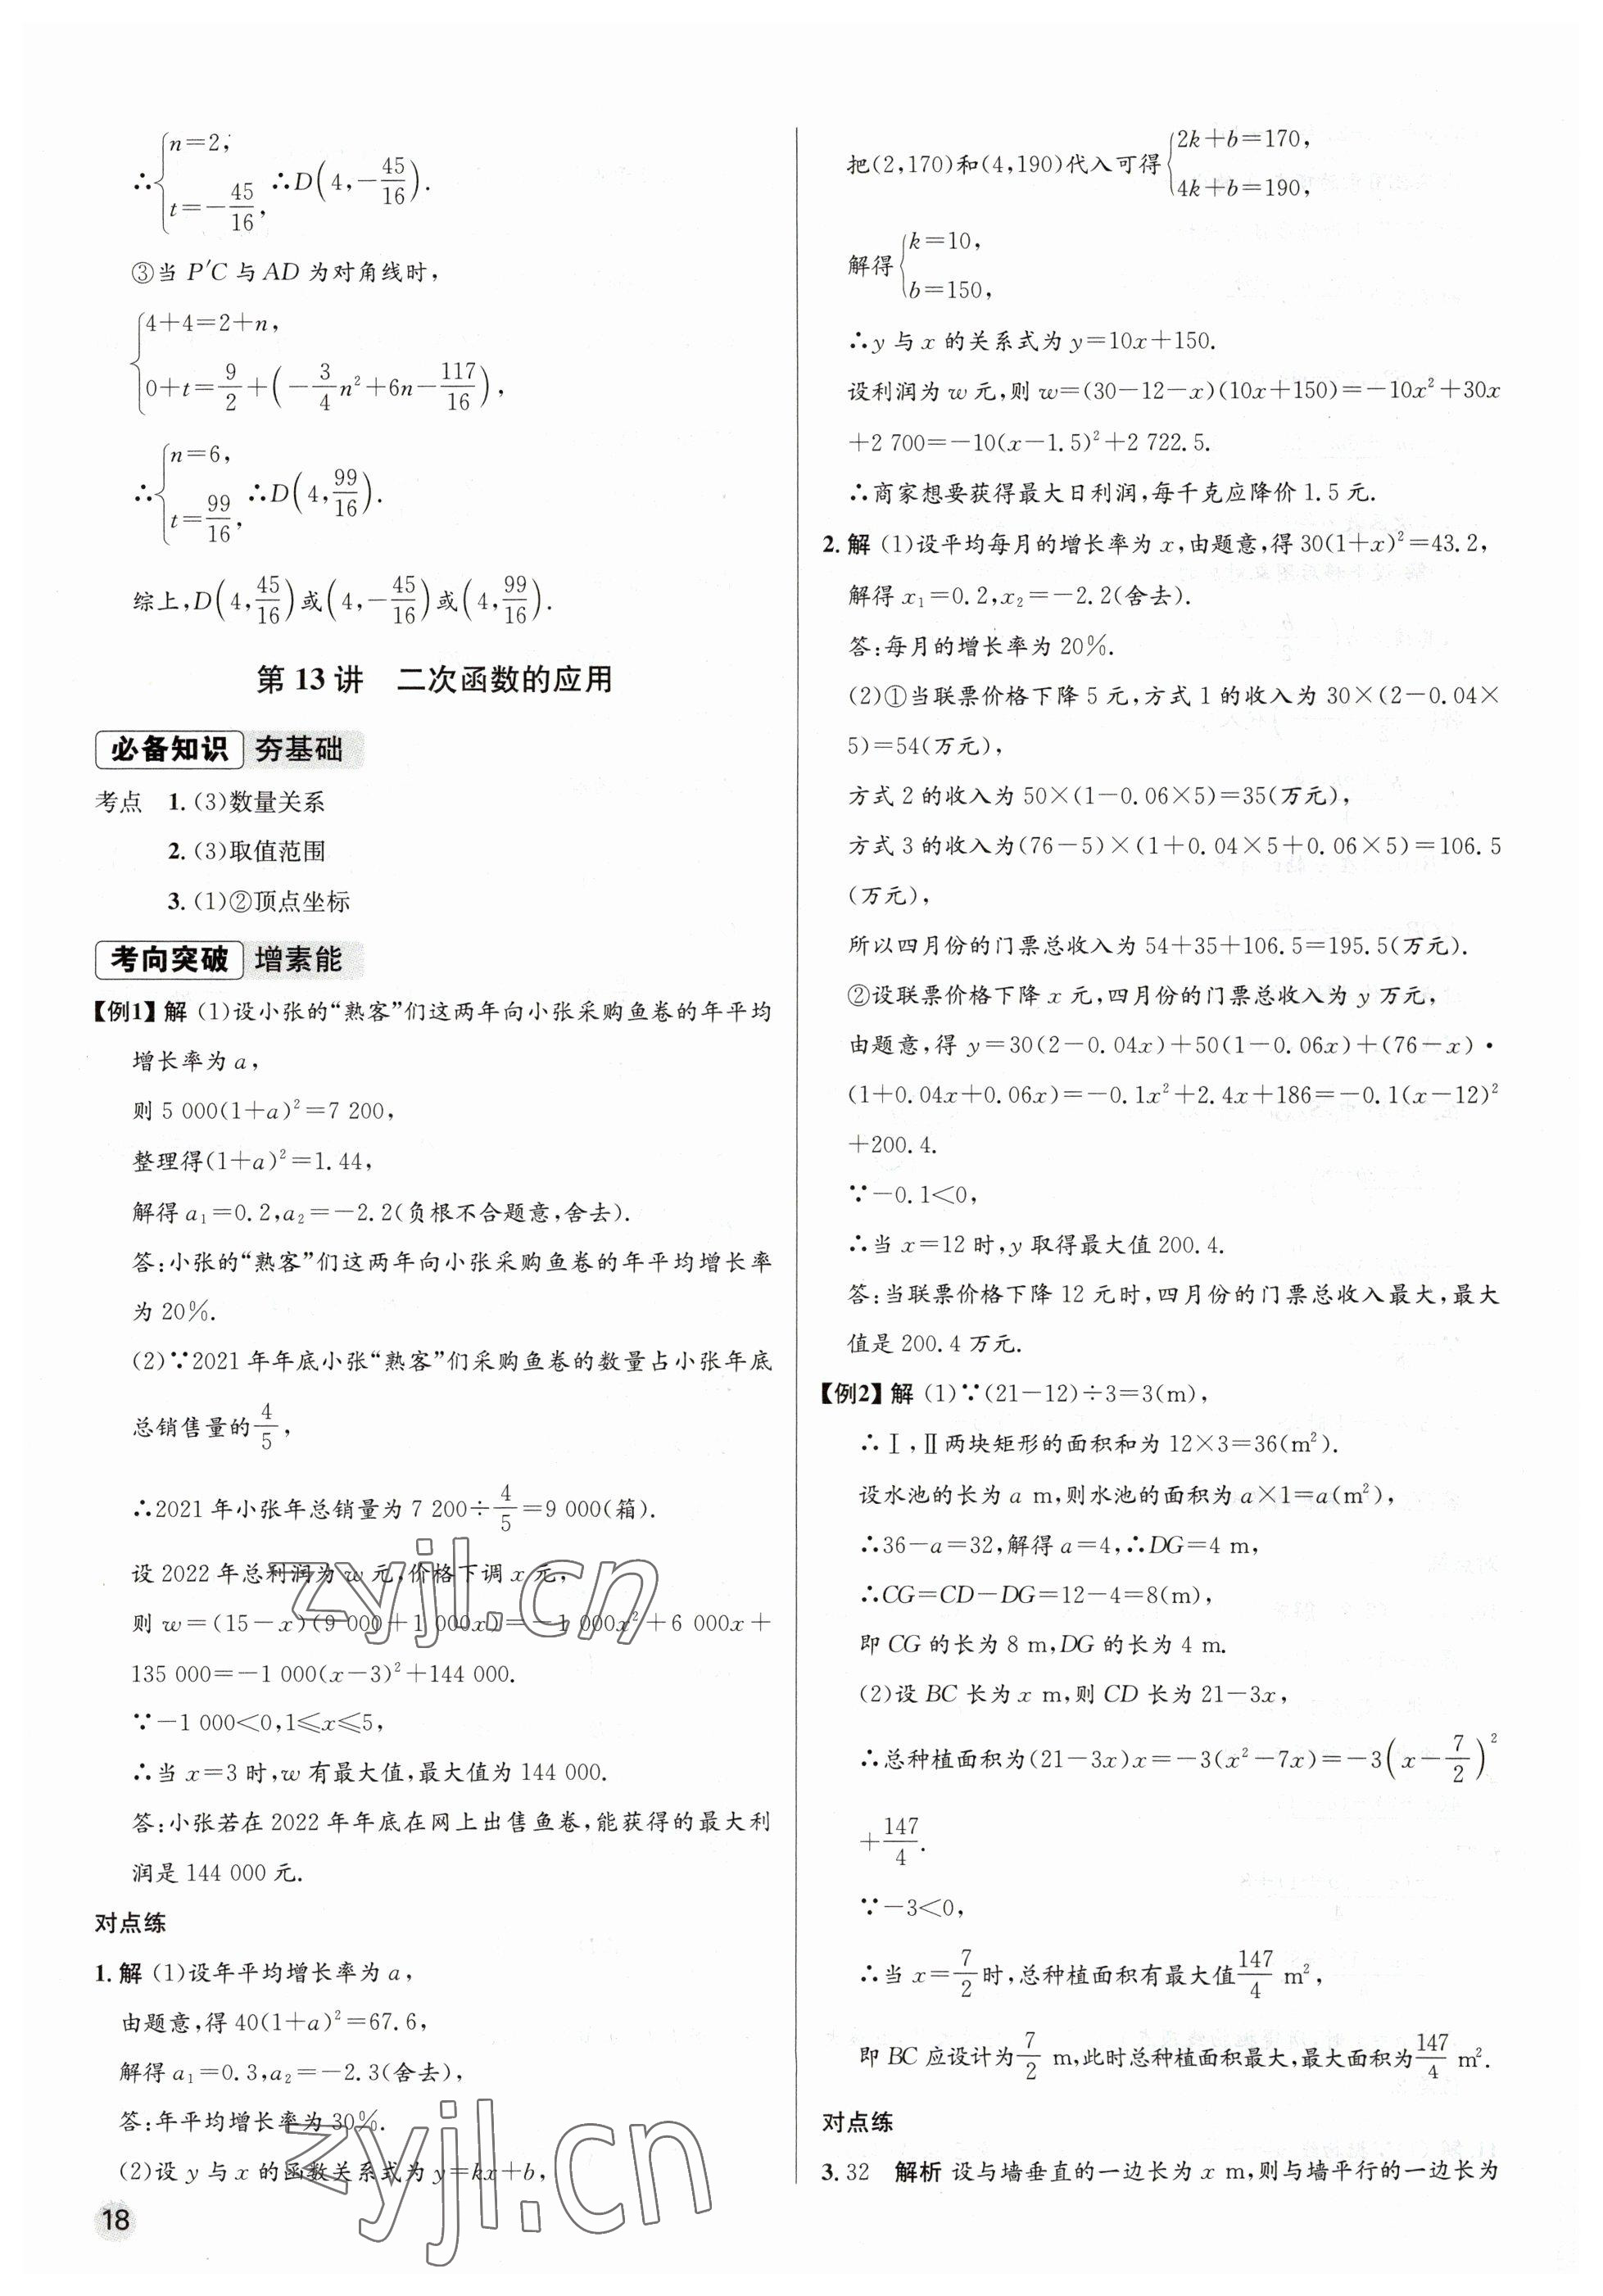 ∴{n=2, t=-45/16, ∴D(4,-45/16).
③当 P′C 与 AD 为对角线时,
{4+4=2+n, 0+t=9/2+(-3/4n²+6n-117/16),
∴{n=6, t=99/16, ∴D(4,99/16).
综上,D(4,45/16)或(4,-45/16)或(4,99/16).
第 13 讲 二次函数的应用
必备知识 夯基础
考点 1.(3)数量关系
2.(3)取值范围
3.(1)②顶点坐标
考向突破 增素能
【例1】解 (1)设小张的“熟客”们这两年向小张采购鱼卷的年平均
增长率为 a,
则 5 000(1+a)²=7 200,
整理得(1+a)²=1.44,
解得 a₁=0.2,a₂=-2.2(负根不合题意,舍去).
答:小张的“熟客”们这两年向小张采购鱼卷的年平均增长率
为 20%.
(2)∵2021 年年底小张“熟客”们采购鱼卷的数量占小张年底
总销售量的4/5,
∴2021 年小张年总销量为 7 200÷4/5=9 000(箱).
设 2022 年总利润为 w 元,价格下调 x 元,
则 w=(15-x)(9 000+1 000x)=-1 000x²+6 000x+
135 000=-1 000(x-3)²+144 000.
∵-1 000<0,1≤x≤5,
∴当 x=3 时,w 有最大值,最大值为 144 000.
答:小张若在 2022 年年底在网上出售鱼卷,能获得的最大利
润是 144 000 元.
对点练
1.解 (1)设年平均增长率为 a,
由题意,得 40(1+a)²=67.6,
解得 a₁=0.3,a₂=-2.3(舍去),
答:年平均增长率为 30%.
(2)设 y 与 x 的函数关系式为 y=kx+b,
把(2,170)和(4,190)代入可得{2k+b=170, 4k+b=190,
解得{k=10, b=150,
∴y 与 x 的关系式为 y=10x+150.
设利润为 w 元,则 w=(30-12-x)(10x+150)=-10x²+30x
+2 700=-10(x-1.5)²+2 722.5.
∴商家想要获得最大日利润,每千克应降价 1.5 元.
2.解 (1)设平均每月的增长率为 x,由题意,得 30(1+x)²=43.2,
解得 x₁=0.2,x₂=-2.2(舍去).
答:每月的增长率为 20%.
(2)①当联票价格下降 5 元,方式 1 的收入为 30×(2-0.04×
5)=54(万元),
方式 2 的收入为 50×(1-0.06×5)=35(万元),
方式 3 的收入为(76-5)×(1+0.04×5+0.06×5)=106.5
(万元),
所以四月份的门票总收入为 54+35+106.5=195.5(万元).
②设联票价格下降 x 元,四月份的门票总收入为 y 万元,
由题意,得 y=30(2-0.04x)+50(1-0.06x)+(76-x)·
(1+0.04x+0.06x)=-0.1x²+2.4x+186=-0.1(x-12)²
+200.4.
∵-0.1<0,
∴当 x=12 时,y 取得最大值 200.4.
答:当联票价格下降 12 元时,四月份的门票总收入最大,最大
值是 200.4 万元.
【例2】解 (1)∵(21-12)÷3=3(m),
∴Ⅰ,Ⅱ两块矩形的面积和为 12×3=36(m²).
设水池的长为 a m,则水池的面积为 a×1=a(m²),
∴36-a=32,解得 a=4,∴DG=4 m,
∴CG=CD-DG=12-4=8(m),
即 CG 的长为 8 m,DG 的长为 4 m.
(2)设 BC 长为 x m,则 CD 长为 21-3x,
∴总种植面积为(21-3x)x=-3(x²-7x)=-3(x-7/2)²
+147/4.
∵-3<0,
∴当 x=7/2时,总种植面积有最大值147/4 m²,
即 BC 应设计为7/2 m,此时总种植面积最大,最大面积为147/4 m².
对点练
3.32 解析 设与墙垂直的一边长为 x m,则与墙平行的一边长为
18
zyjl.cn
zyjl.cn